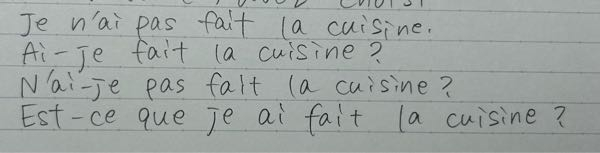 Je n'ai pas fait la cuisine.
Ai-je fait la cuisine ?
N'ai-je pas fait la cuisine ?
Est-ce que je ai fait la cuisine ?